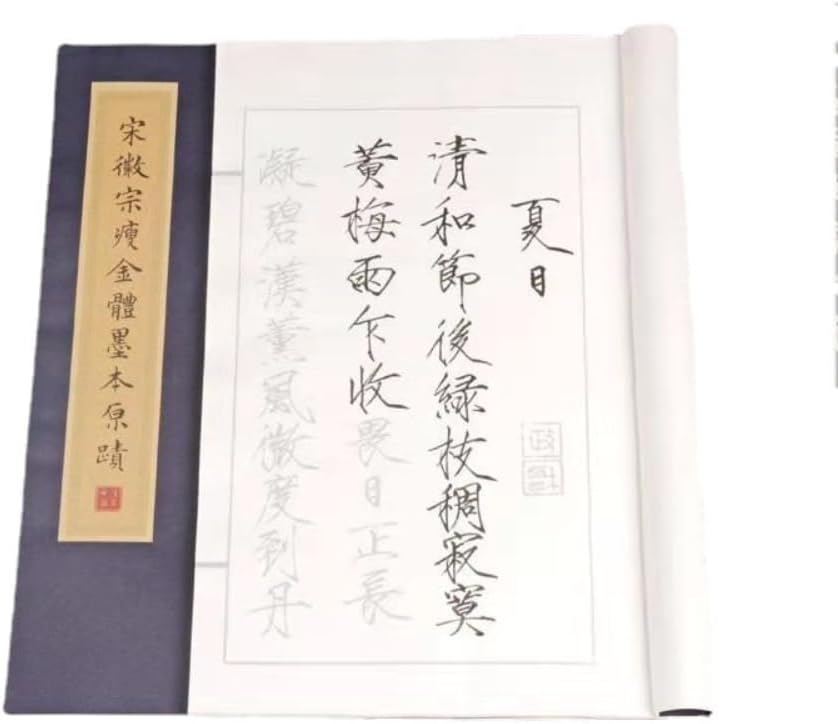 宋徽宗瘦金體墨本原蹟
夏日
清和節後緑枝稠寂寞
黃梅雨乍收畏日正長
凝碧漢薰風微度到丹